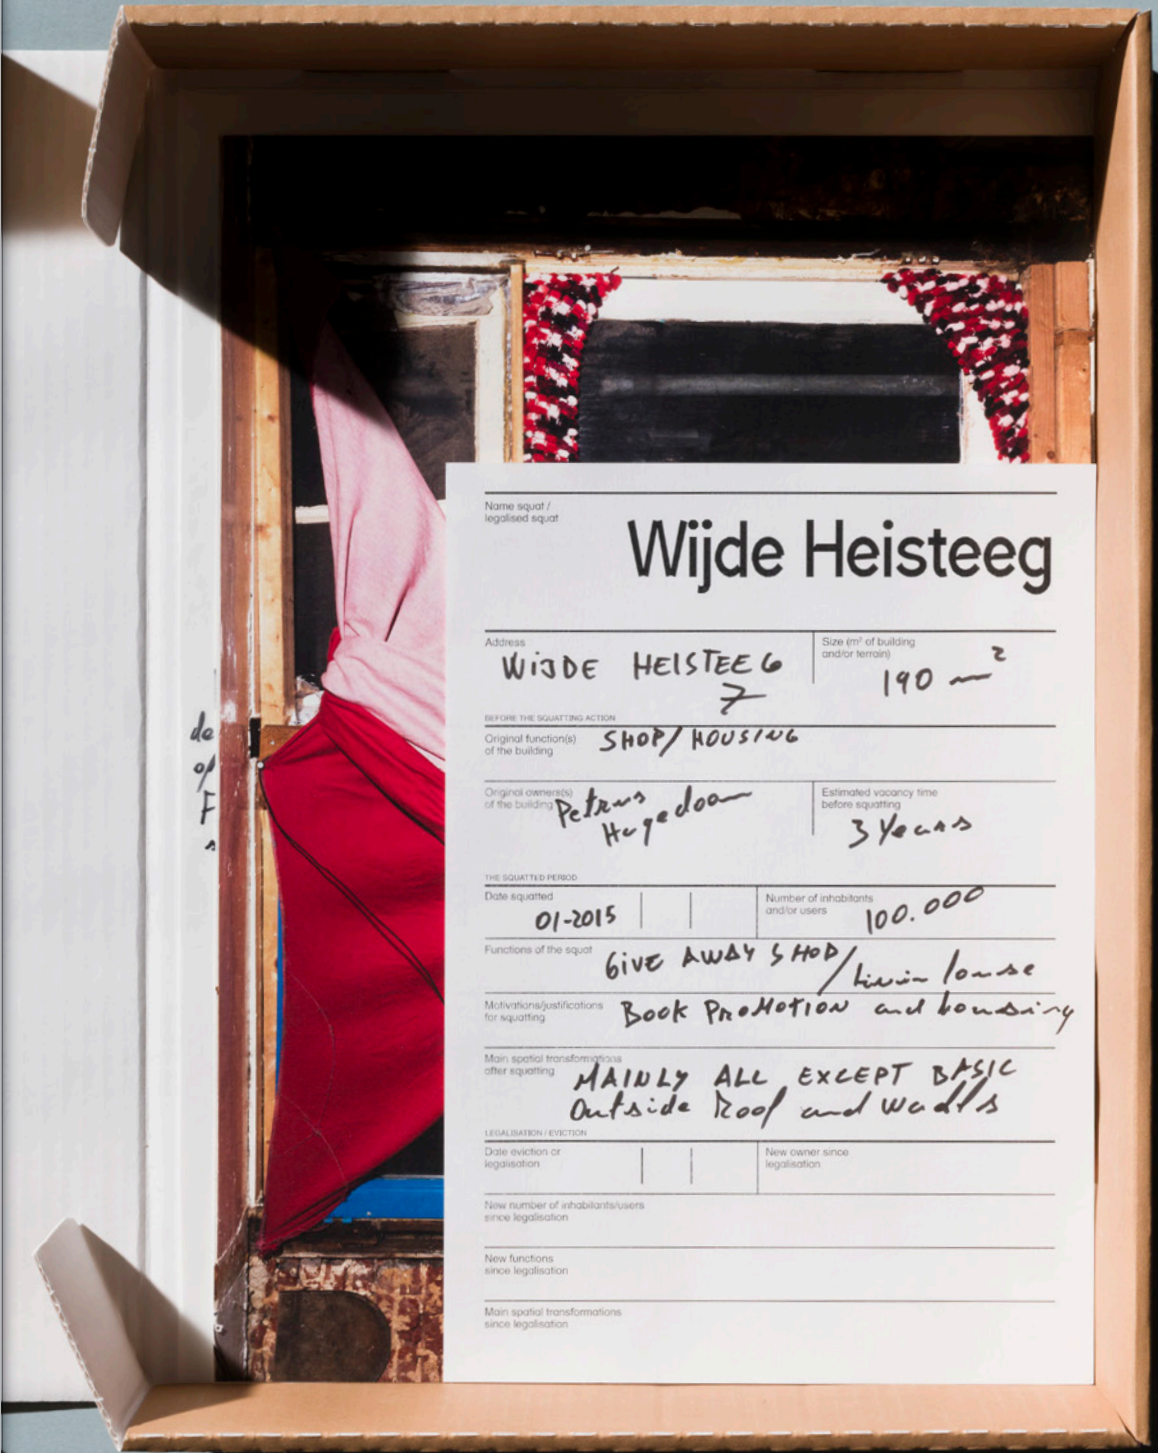 de
op
F
s
Name squat /
legalised squat
Wijde Heisteeg
Address
WIJDE HEISTEEG
7
Size (m² of building
and/or terrain)
190 m²
BEFORE THE SQUATTING ACTION
Original function(s)
of the building
SHOP/HOUSING
Original owners(s)
of the building
Petrus
Hagedoorn
Estimated vacancy time
before squatting
3 Years
THE SQUATTED PERIOD
Date squatted
01-2015
Number of inhabitants
and/or users
100.000
Functions of the squat
GIVE AWAY SHOP/
Motivations/justifications
for squatting
BOOK PROMOTION and housing
Main spatial transformations
after squatting
MAINLY ALL EXCEPT BASIC
Outside Roof and Walls
LEGALISATION / EVICTION
Date eviction or
legalisation
New owner since
legalisation
New number of inhabitants/users
since legalisation
New functions
since legalisation
Main spatial transformations
since legalisation